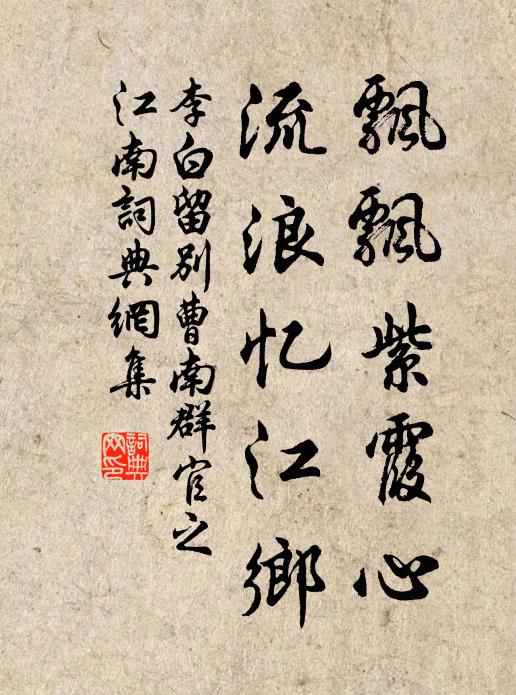 飄飄紫霞心
流浪忆江鄉
李白留別曹南群官之
江南詞典網集
詞典
网印